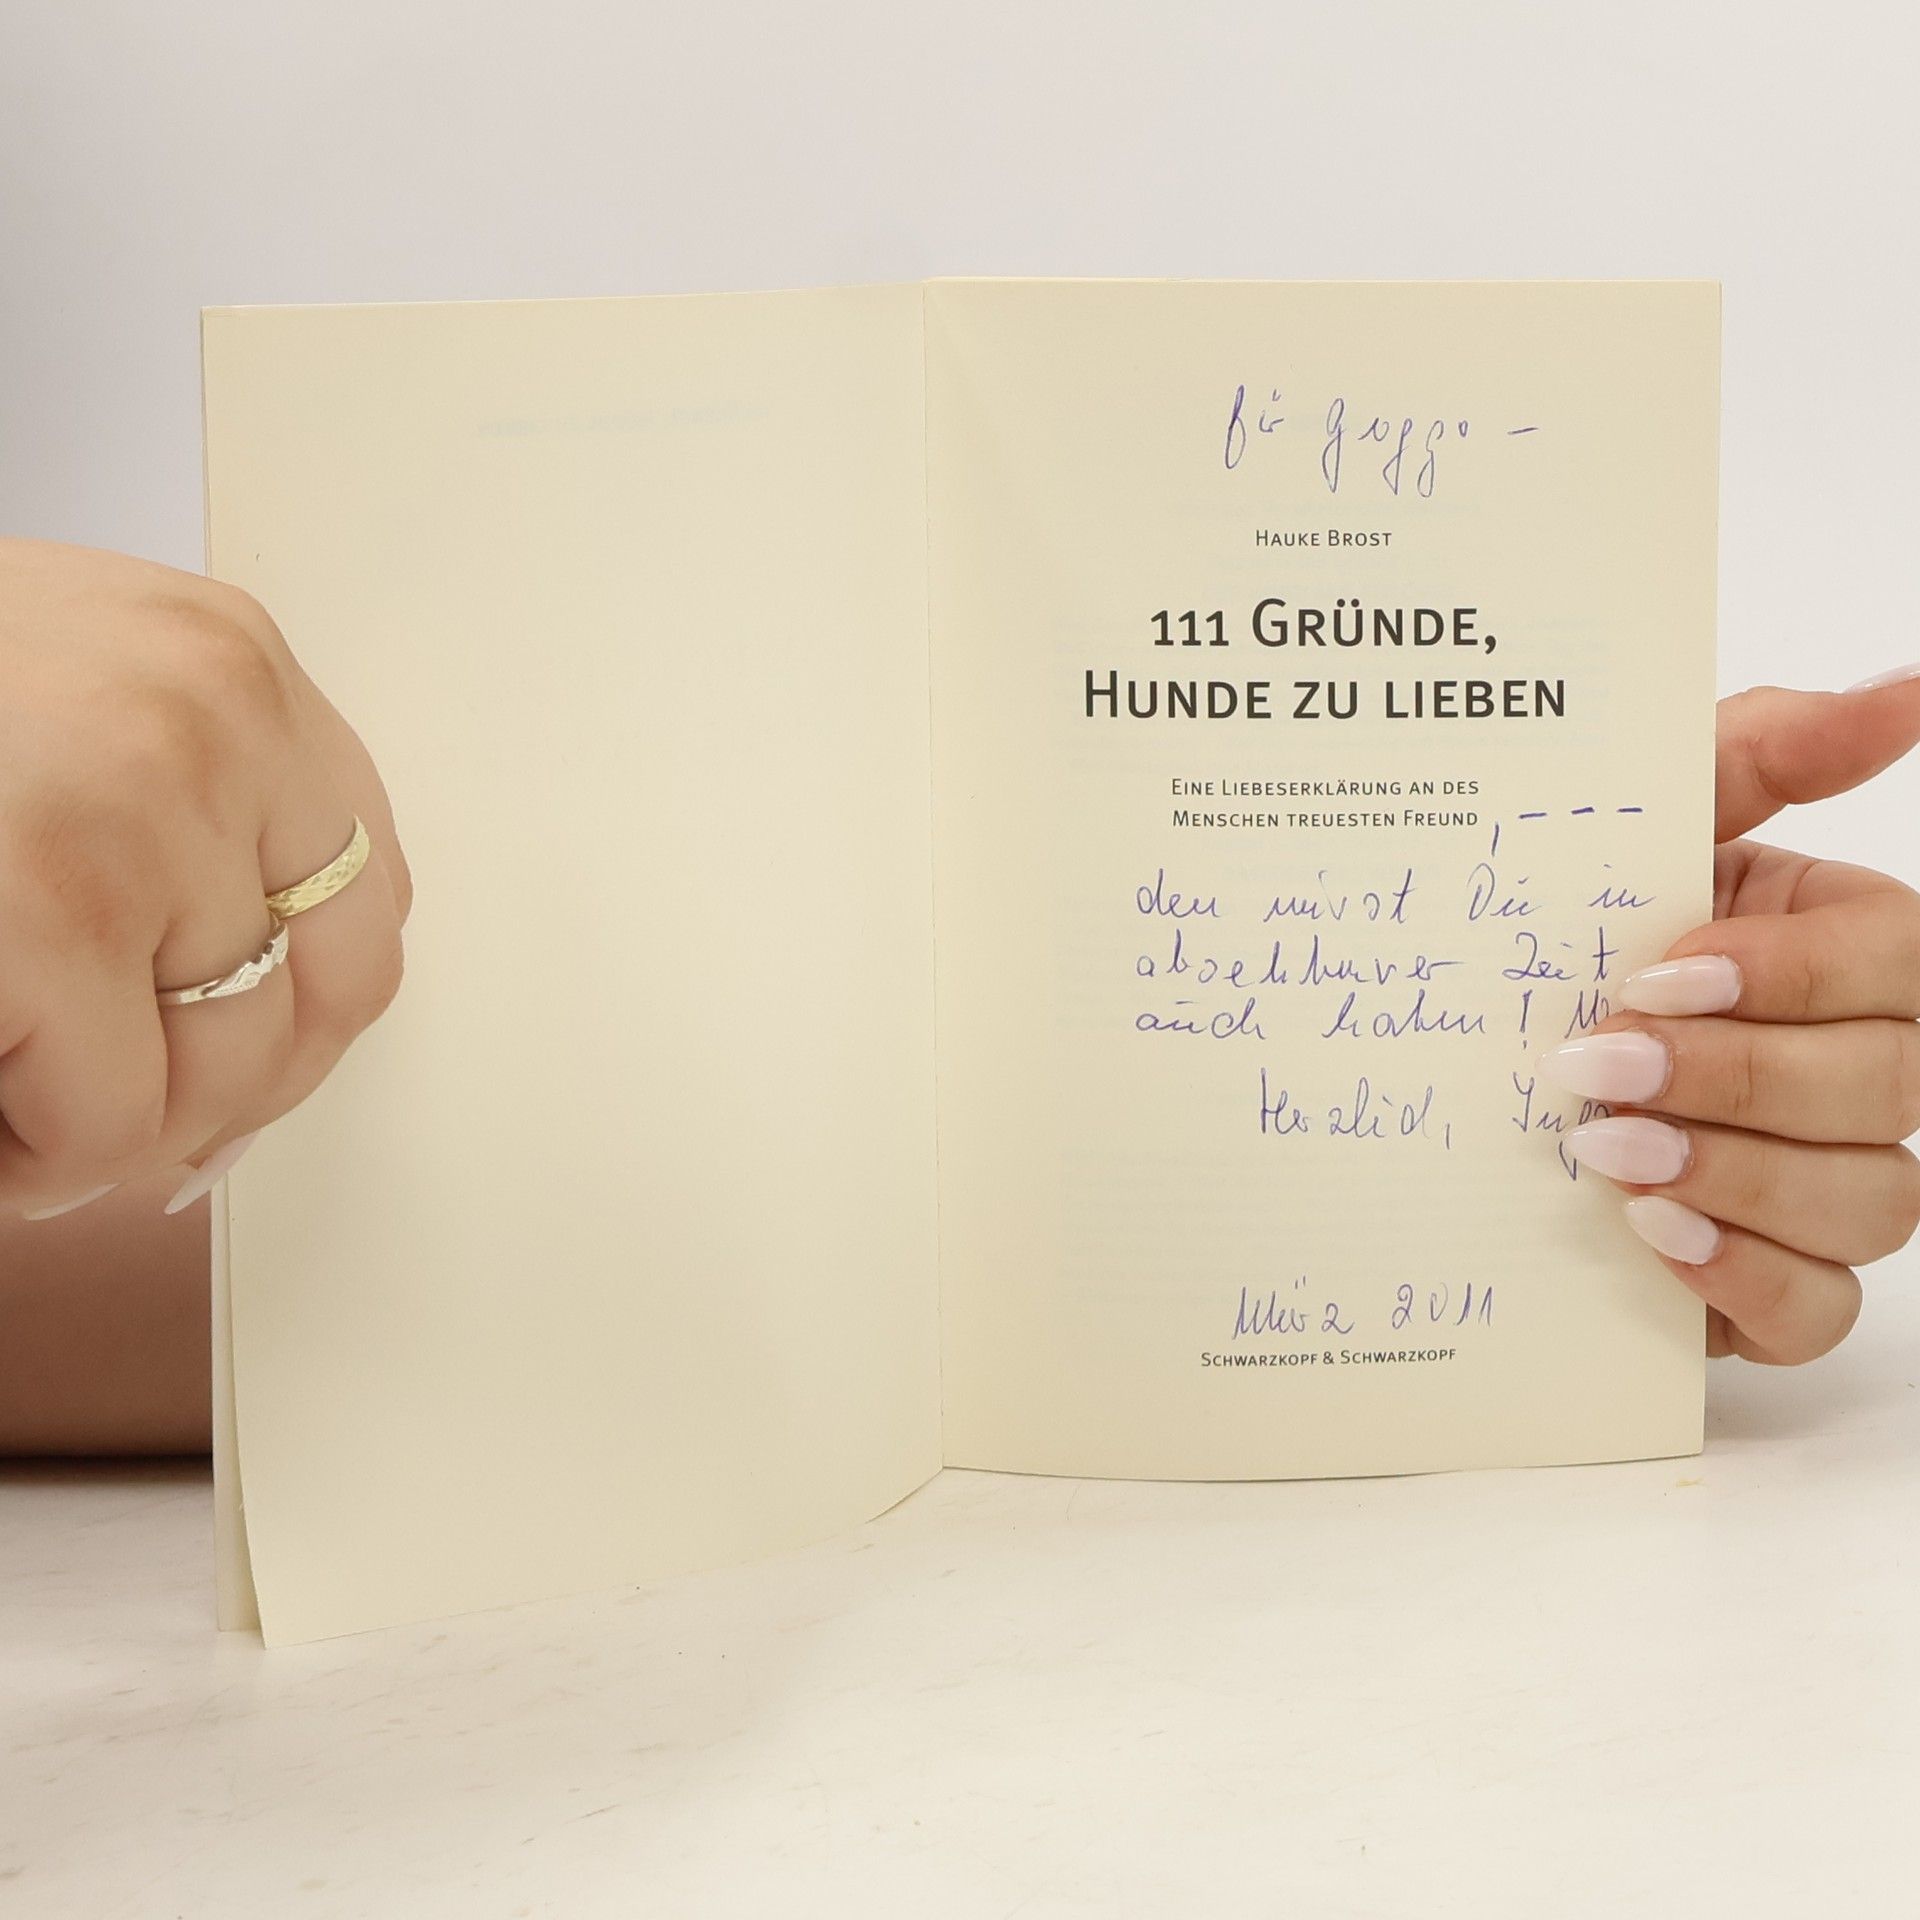 für Goggo –
HAUKE BROST
111 GRÜNDE,
HUNDE ZU LIEBEN
EINE LIEBESERKLÄRUNG AN DES
MENSCHEN TREUESTEN FREUND , – – –
den wirst Du in
absehbarer Zeit
auch haben!
Herzlich,
März 2011
SCHWARZKOPF & SCHWARZKOPF